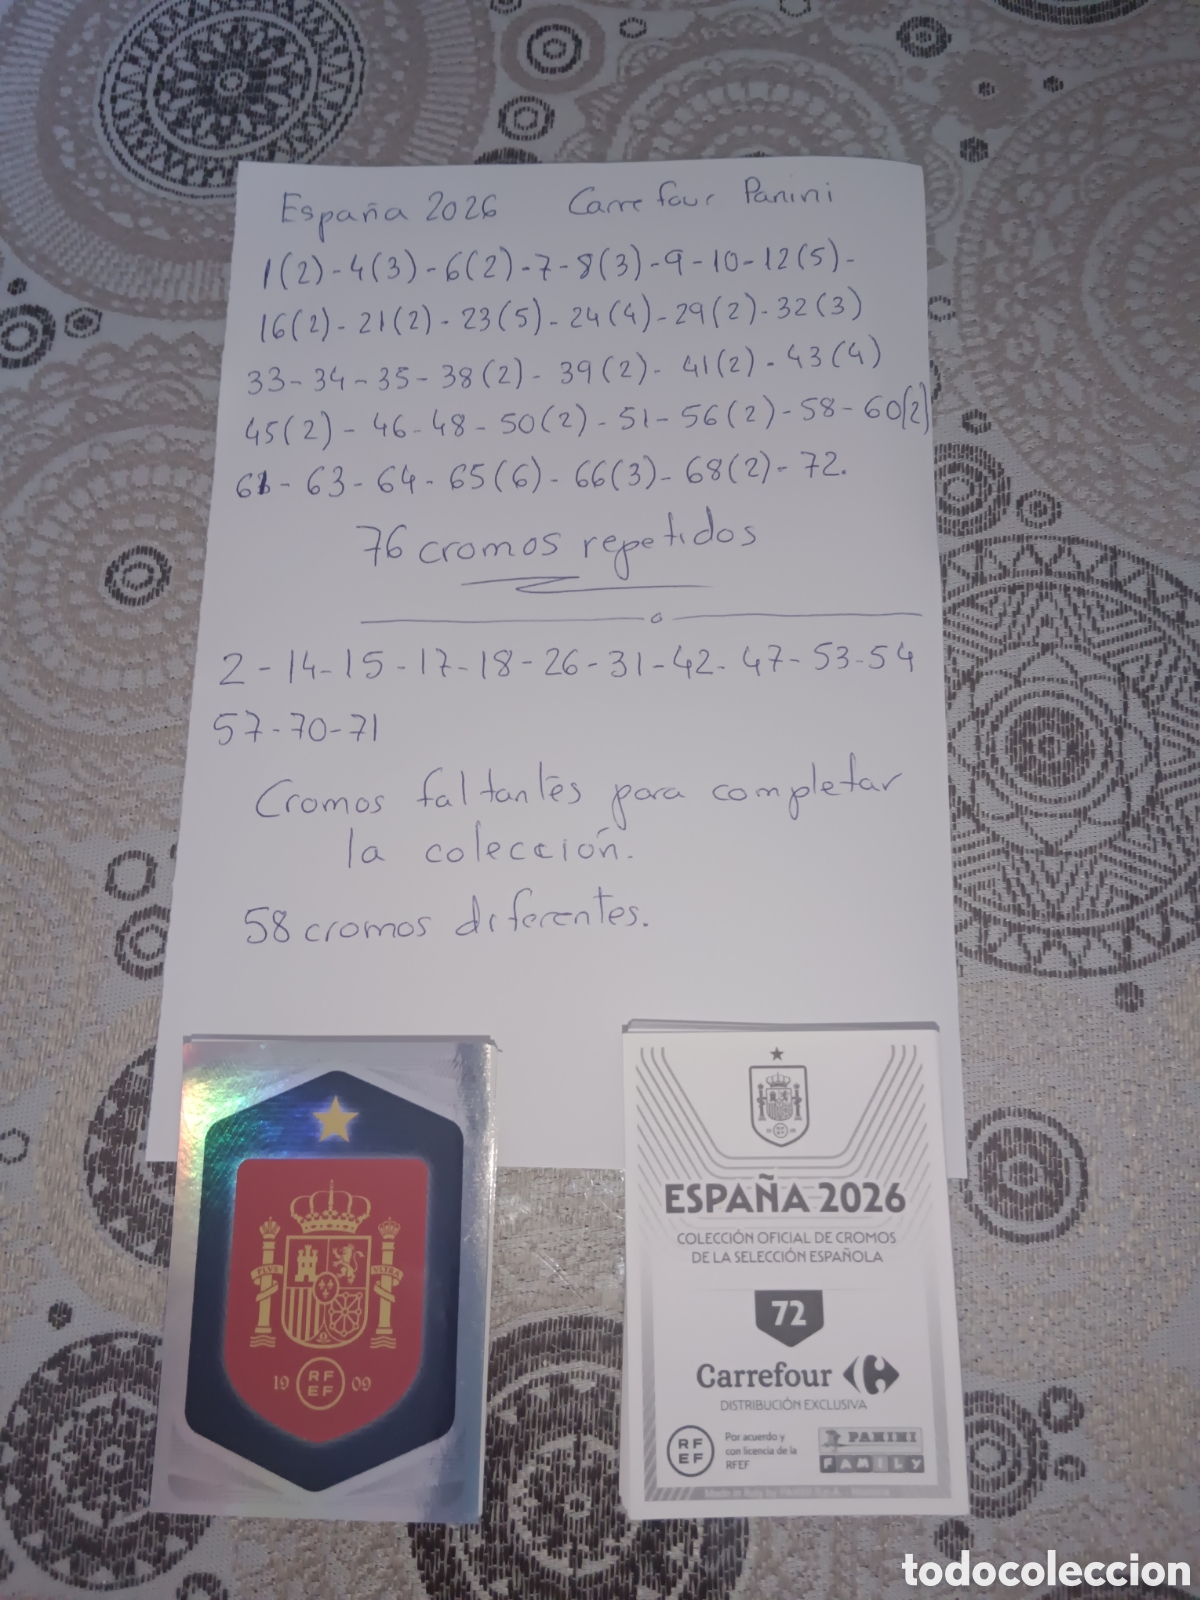 España 2026 Carrefour Panini
1(2)-4(3)-6(2)-7-8(3)-9-10-12(5)-
16(2)-21(2)-23(5)-24(4)-29(2)-32(3)
33-34-35-38(2)-39(2)-41(2)-43(4)
45(2)-46-48-50(2)-51-56(2)-58-60(2)
61-63-64-65(6)-66(3)-68(2)-72.
76 cromos repetidos
2-14-15-17-18-26-31-42-47-53-54
57-70-71
Cromos faltantes para completar
la colección.
58 cromos diferentes.
PLUS ULTRA
19 RFEF 09
ESPAÑA 2026
COLECCIÓN OFICIAL DE CROMOS
DE LA SELECCIÓN ESPAÑOLA
72
Carrefour
DISTRIBUCIÓN EXCLUSIVA
RF
EF
Por acuerdo y
con licencia de la
RFEF
PANINI
FAMILY
todocoleccion